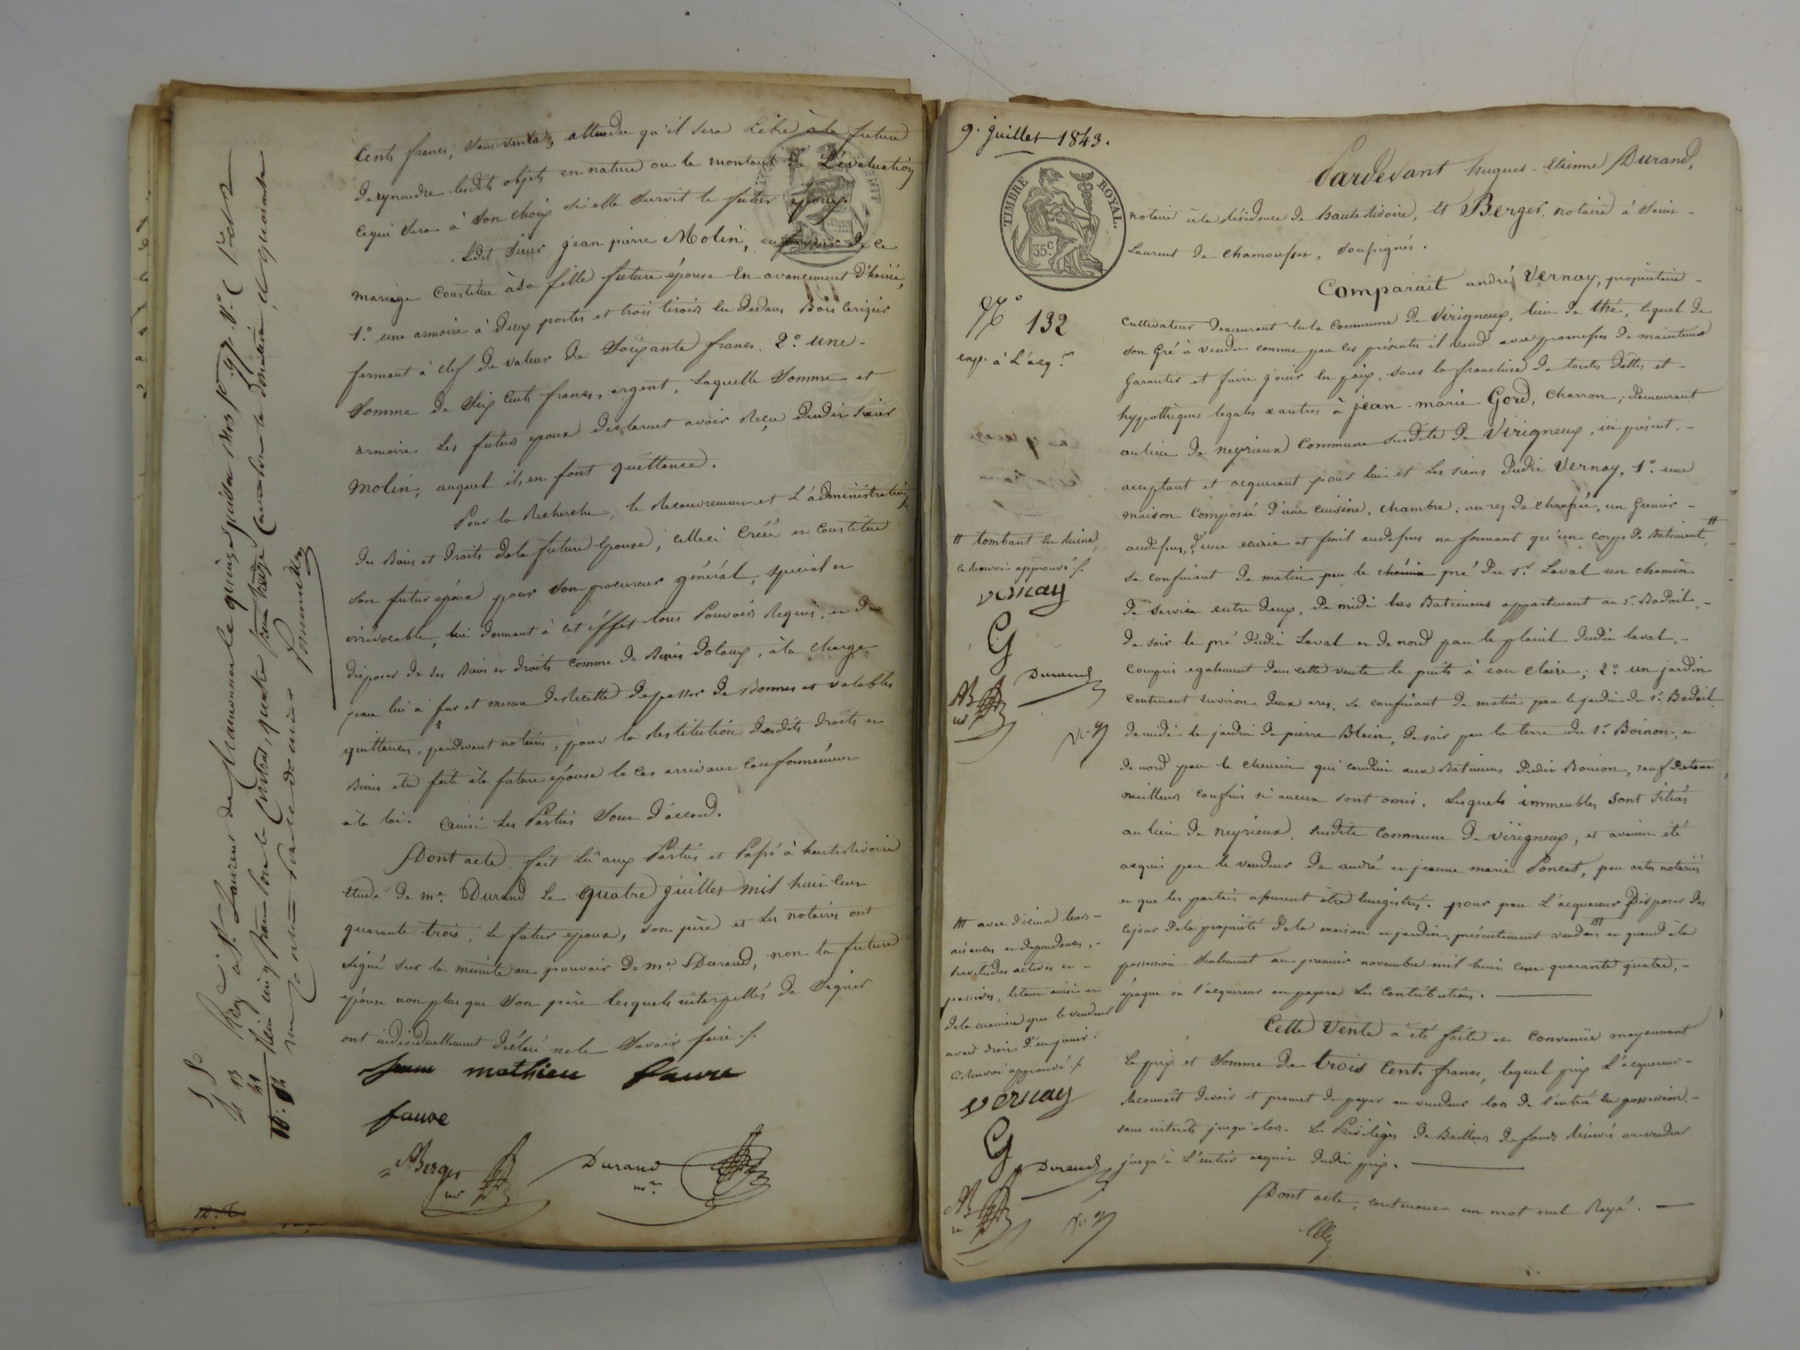 Cents francs, sans vente, attendu qu'il sera Libre à la future
De reprendre lesdits objets en nature ou le montant de L'évaluation
ce qui sera à son choix si elle survit le futur époux.
Ledit Sieur jean pierre Molin, en faveur de ce
mariage Constitue à sa fille future épouse En avancement D'hoirie,
1.° une armoire à Deux portes et trois tiroirs en Dedans Bois Cerisier
fermant à clef de valeur de Soixante francs. 2.° une
Somme de Six Cents francs, argent, Laquelle Somme et
armoire Les futurs epoux Déclarent avoir Reçu Dudit Sieur
Molin, auquel ils en font quittance.
Pour la Recherche, le Recouvrement et L'administration
Des Biens et Droits de la future Epouse, celle-ci Créé et Constitue
son futur époux pour son procureur général, Spécial et
irrévocable, lui Donnant à cet éffet tous Pouvoirs Requis, et De
disposer de ses Biens et Droits comme de Biens Dotaux, à la charge
par lui à fur et mesure de Recette De passer De Bonnes et valables
quittances, pardevant notaires, pour la Restitution Desdits Droits et
Biens être faite à la future épouse le cas arrivant Conformément
à la loi. Ainsi Les Parties Sont D'accord.
Dont acte, fait Lû aux Parties et Passé à hauterivoire
Etude de m.e Durand Le quatre juillet mil huit cent
quarante trois, Le futur epoux, son père et Les notaires ont
signé sur la minute au pouvoir De m.e Durand, non la future
épouse non plus que Son père lesquels interpellés De Signer
ont individuellement Déclaré ne le Savoir faire ./.
mathieu faure
faure
ABerger
nre
Durand
nre
Reg. à St. Laurent de Chamousset le quinze juillet 1843 f.° 97. V.° C. 1re et 2
Reçu cinq francs pour le Contrat, quatre francs
9. juillet 1843.
TIMBRE ROYAL
35c
N.° 132
exp. à L'acq.r
Pardevant hugues-Etienne Durand,
notaire à la Résidence de hauterivoire, Et Berger, notaire à Saint-
Laurent de chamousset, soussignés.
Comparait andré Vernay, propriétaire-
Cultivateur Demeurant en la Commune De Virigneux, lieu de thé, lequel De
Son Gré à vendu comme par les présentes il vend avec promesses De maintenir
Garantir et faire jouir En paix, sous la franchise De toutes Dettes et-
hyppothèques legales & autres à jean-marie Gord, charron, Demeurant
au lieu De neyrieux Commune Susdite De Virigneux, ici présent,-
acceptant et acquerant pour lui et Les siens Dudit Vernay, 1.° une
maison composée D'une cuisine, chambre, au rez De chaussée, un Grenier-
audessus, D'une écurie et fenil audessus ne formant qu'un corps De Batiment, #
se confinant De matin par le chémin pré Du s.r Laval un chemin
De Service entre Deux, De midi les Batiments appartenant au s.r Badoil,-
De soir le pré Dudit Laval et De nord par le plaint Dudit laval,-
Compris egalement Dans cette vente le puits à eau claire; 2.° un jardin
contenant environ Deux ares, Se confinant De matin par le jardin Du s.r Badoil
De midi le jardin De pierre Blein, De soir par la terre Du s.r Boinon, et
De nord par le chemin qui conduit aux Batiments Dudit Boinon, sauf De tous
meilleurs confins si aucun sont omis. Lesquels immeubles Sont Situés
au lieu De neyrieux, susdite commune De Virigneux, et avaient été
acquis par le vendeur De andré et jeanne marie Poncet, par actes notariés
et que les parties assurent être Enregistrés. pour par L'acquereur Disposer Dès
ce jour De la propriété De la maison et jardin, présentement vendus ### et quand à la
possession seulement au premier novembre mil huit cent quarante quatre,-
époque où l'acquereur en payera Les Contributions.
Cette Vente a été faite et Convenüe moyennant
Le prix et Somme De trois Cents francs, lequel prix L'acquereur-
Reconnaît devoir et promet De payer au vendeur lors De l'entrée En possession-
sans intérêts jusqu'alors. Le Privilège De Bailleur De fonds Réservé au vendeur
jusqu'à L'entier acquit Dudit prix.
Dont acte, contenant un mot nul Rayé.
# tombant En Ruine,
Ce Renvoi approuvé ./.
vernay
G
Durand
AB
nre
### avec D'iceux leurs-
aisances et Dependances,-
Servitudes actives et-
passives, le tout ainsi et
De la manière que le vendeur
avait Droit D'en jouir.
Ce Renvoi approuvé ./.
vernay
G
Durand
AB